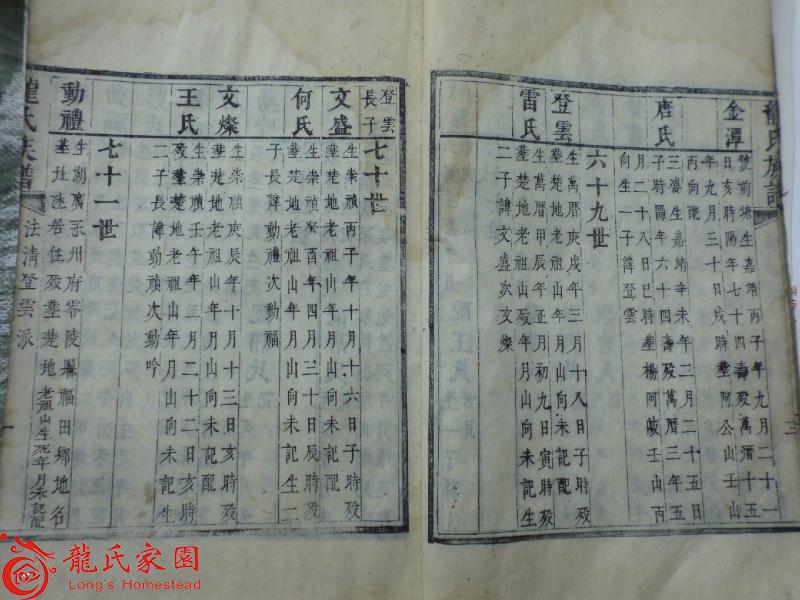 龍氏族譜
三
金潭
雙前塘生嘉靖丙子年九月二十一
日亥時陽年七十四壽殁萬厯十五
年九月三十日戌時塟阿公山壬山
丙向配
唐氏
三婆生嘉靖辛未年二月二十五日
子時陽年六十四壽殁萬厯三年五
月二十八日巳時塟楊阿岐壬山丙
向生一子諱登雲
六十九世
登雲
生萬厯庚戌年三月十八日子時殁
塟楚地老祖山年月山向未記配
雷氏
生萬厯甲辰年正月初九日寅時殁
塟楚地老祖山殁年月山向未記生
二子諱文盛次文燦
七十世
登雲長子
文盛
生崇禎丙子年十月十六日子時殁
塟楚地老祖山年月山向未記配
何氏
生崇禎癸酉年四月三十日辰時殁
塟楚地老祖山年月山向未記生二
子長諱動禮次動福
文燦
生崇禎庚辰年十月十三日亥時殁
塟楚地老祖山年月山向未記配
王氏
生崇禎壬午年二月二十二日亥時
殁塟楚地老祖山年月山向未記生
二子長諱動禎次動吟
七十一世
動禮
生湖廣永州府零陵縣福田鄉地名
居住殁塟楚地老祖山生死年月未記配
龍氏族譜
法清登雲派
龍氏家園
Long's Homestead